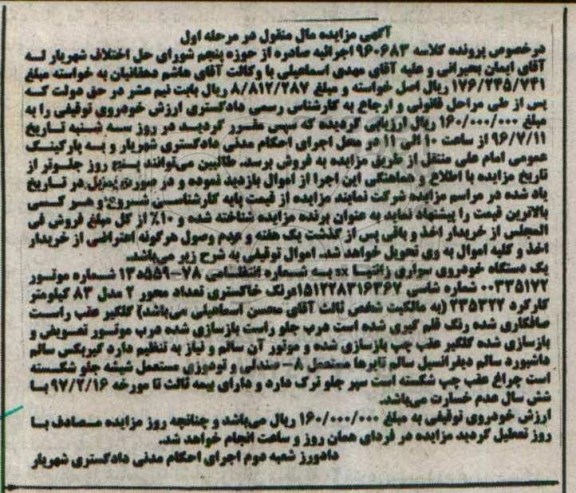 آگهی مزایده مال منقول در مرحله اول
درخصوص پرونده کلاسه ۹۶۰۶۸۳ اجرائیه صادره از حوزه پنجم شورای حل اختلاف شهریار له
آقای ایمان بحیرانی و علیه آقای مهدی اسماعیلی با وکالت آقای هاشم دهقانیان به خواسته مبلغ
۱۷۶/۲۴۵/۷۴۱ ریال اصل خواسته و مبلغ ۸/۸۱۲/۲۸۷ ریال بابت نیم عشر در حق دولت که
پس از طی مراحل قانونی و ارجاع به کارشناس رسمی دادگستری ارزش خودروی توقیفی را به
مبلغ ۱۶۰/۰۰۰/۰۰۰ ریال ارزیابی گردیده که سپس مقرر گردید در روز سه شنبه تاریخ
۹۶/۷/۱۱ از ساعت ۱۰ الی ۱۱ در محل اجرای احکام مدنی دادگستری شهریار و به پارکینگ
عمومی امام علی منتقل از طریق مزایده به فروش برسد. طالبین می‌توانند پنج روز جلوتر از
تاریخ مزایده با اطلاع و هماهنگی این اجرا از اموال بازدید نموده و در صورت تمایل در تاریخ
یاد شده در مراسم مزایده شرکت نمایند مزایده از قیمت پایه کارشناسی شروع و هر کسی
بالاترین قیمت را پیشنهاد نماید به عنوان برنده مزایده شناخته شده و ۱۰٪ از کل مبلغ فروش فی
المجلس از خریدار اخذ و باقی پس از گذشت یک هفته و عدم وصول هرگونه اعتراضی از خریدار
اخذ و کلیه اموال به وی تحویل خواهد شد. اموال توقیفی به شرح زیر می‌باشد.
یک دستگاه خودروی سواری زانتیا sx به شماره انتظامی ۷۸-۵۵۹ن۱۳ شماره موتور
۰۰۳۳۵۱۷۲ شماره شاسی رنگ خاکستری تعداد محور ۲ مدل ۸۳ کیلومتر
کارکرد ۲۳۵۳۲۲ (به مالکیت شخص ثالث آقای محسن اسماعیلی می‌باشد) گلگیر عقب راست
صافکاری شده رنگ قلم گیری شده است درب جلو راست بازسازی شده درب موتور تعویض و
بازسازی شده گلگیر عقب چپ بازسازی شده و موتور آن سالم و نیاز به تنظیم دارد گیربکس سالم
داشبورد سالم دیفرانسیل سالم تایرها مستعمل ۸- صندلی و تودوزی مستعمل شیشه جلو شکسته
است چراغ عقب چپ شکسته است سپر جلو ترک دارد و دارای بیمه ثالث تا مورخه ۹۷/۲/۱۶ با
شش سال عدم خسارت می‌باشد.
ارزش خودروی توقیفی به مبلغ ۱۶۰/۰۰۰/۰۰۰ ریال می‌باشد و چنانچه روز مزایده مصادف با
روز تعطیل گردید مزایده در فردای همان روز و ساعت انجام خواهد شد.
دادورز شعبه دوم اجرای احکام مدنی دادگستری شهریار